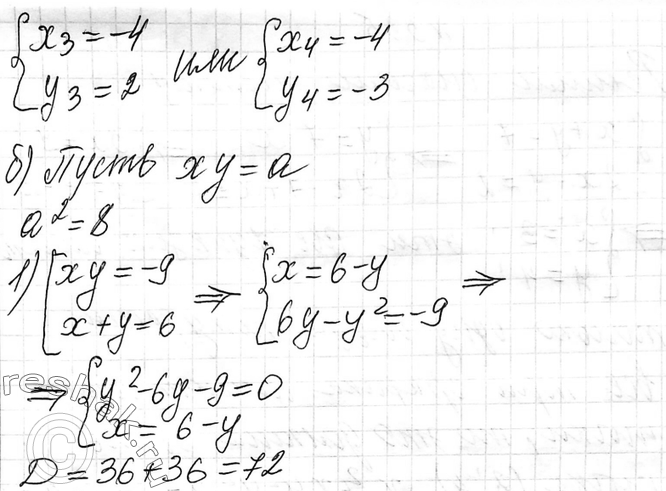 {x₃ = -4 или {x₄ = -4
{y₃ = 2 {y₄ = -3
б) Пусть xy = a
a² = 8
1) [xy = -9 ⇒ {x = 6-y ⇒
[x+y = 6 {6y-y² = -9
⇒ {y²-6y-9 = 0
{x = 6-y
D = 36+36 = 72
reshak.ru
©